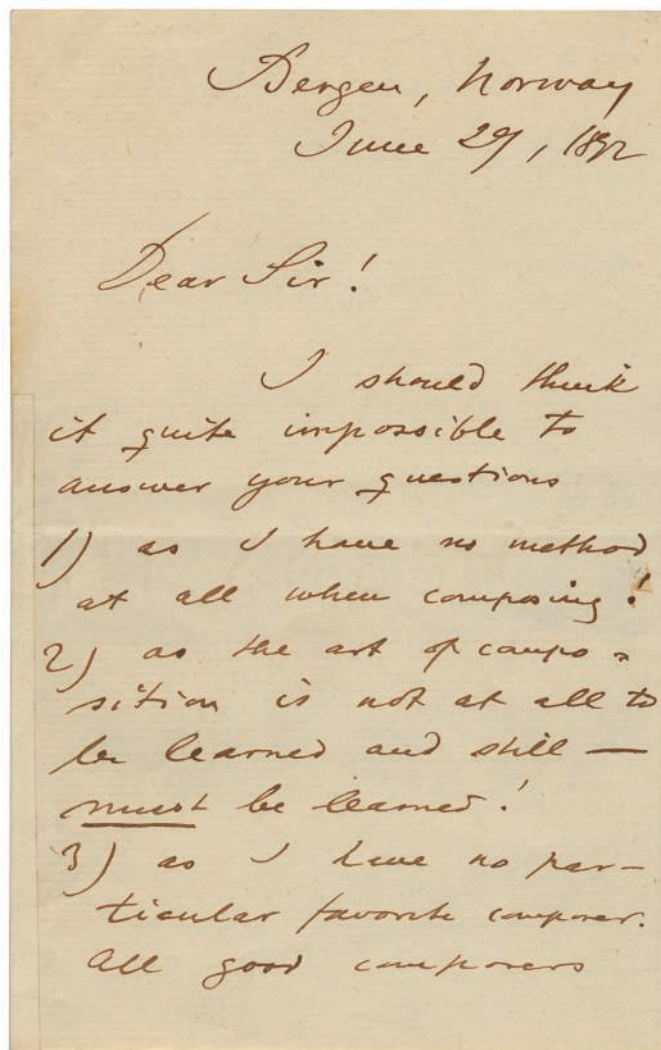 Bergen, Norway
June 29, 1892
Dear Sir!
I should think
it quite impossible to
answer your questions
1) as I have no method
at all when composing!
2) as the art of compo=
sition is not at all to
be learned and still —
must be learned!
3) as I have no par-
ticular favorite composer.
All good composers